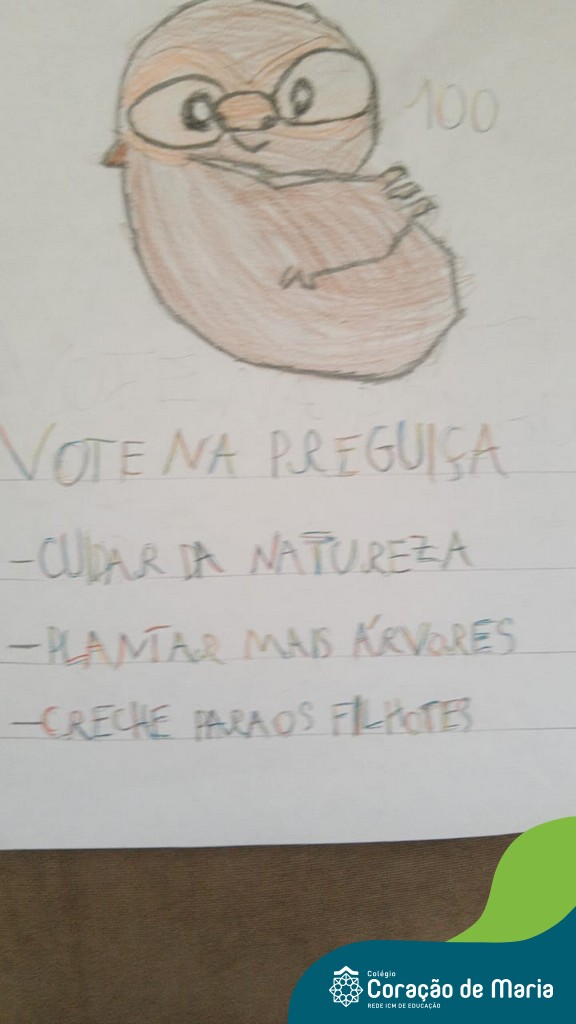 100
VOTE NA PREGUIÇA
-CUIDAR DA NATUREZA
-PLANTAR MAIS ÁRVORES
-CRECHE PARA OS FILHOTES
Colégio
Coração de Maria
REDE ICM DE EDUCAÇÃO